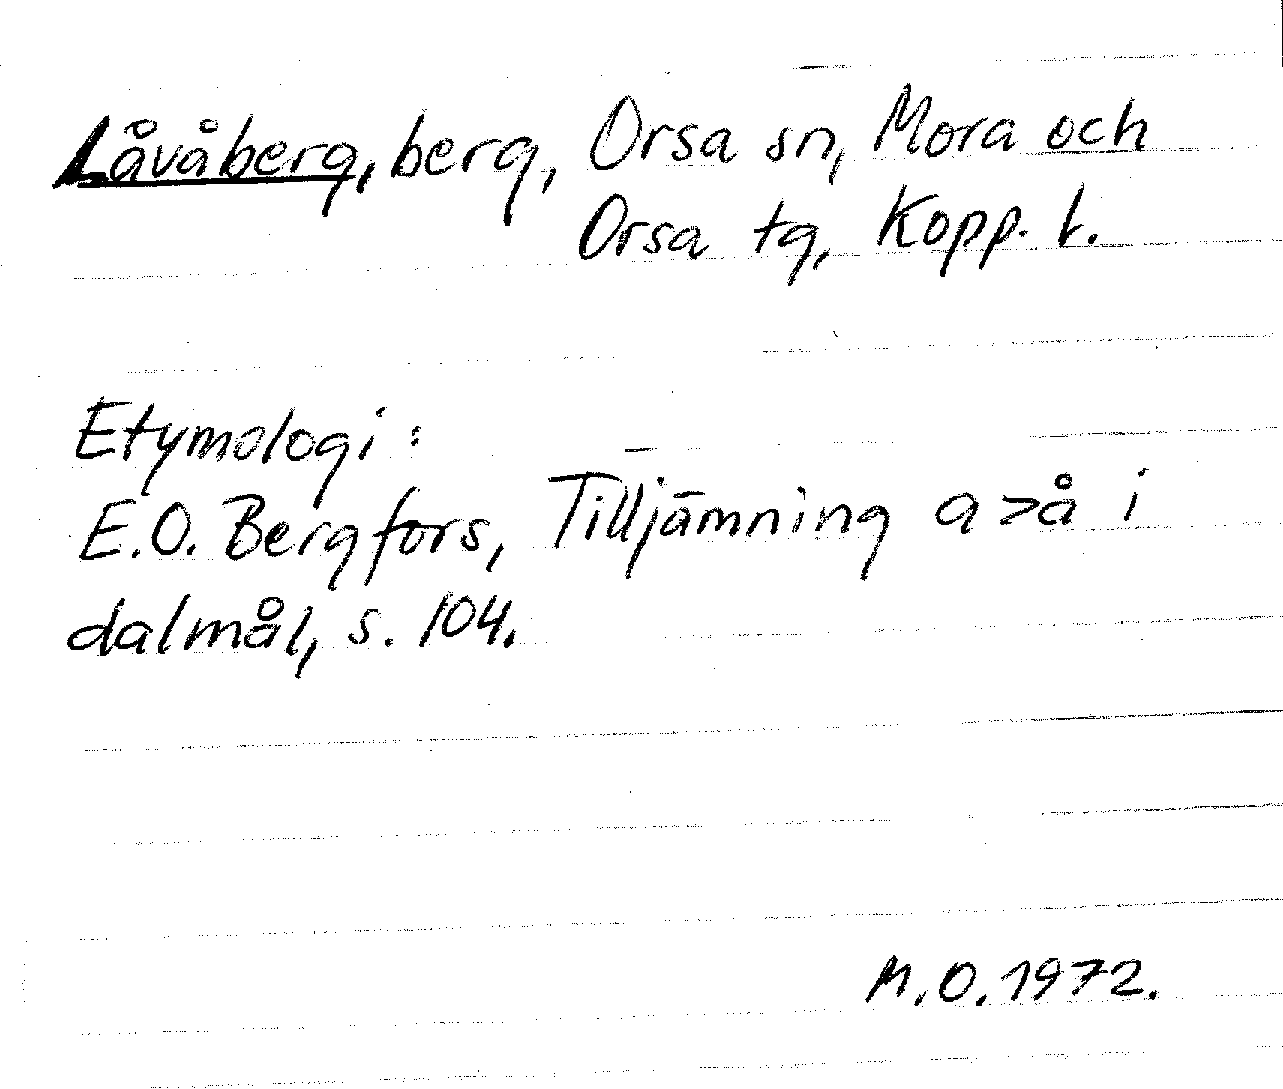 Låvåberg, berg, Orsa sn, Mora och
Orsa tg, Kopp. l.
Etymologi:
E.O. Bergfors, Tilljämning a>å i
dalmål, s. 104.
M.O. 1972.